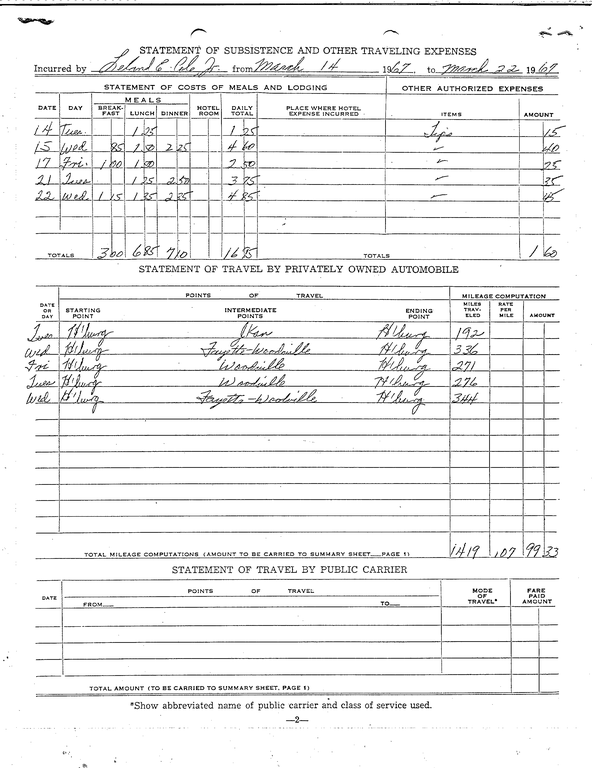 STATEMENT OF SUBSISTENCE AND OTHER TRAVELING EXPENSES
Incurred by Leland E. Cole, Jr. from March 14 1967 to March 22 1967
STATEMENT OF COSTS OF MEALS AND LODGING OTHER AUTHORIZED EXPENSES
MEALS
DATE DAY BREAK-FAST LUNCH DINNER HOTEL ROOM DAILY TOTAL PLACE WHERE HOTEL EXPENSE INCURRED ITEMS AMOUNT
14 Tues. 1 25 1 25 Tips 15
15 Wed 85 1 50 2 25 4 60 " 40
17 Fri. 1 00 1 50 2 50 " 25
21 Tues 1 25 2 50 3 75 " 35
22 Wed. 1 15 1 35 2 35 4 85 " 45
TOTALS 3 00 6 85 7 10 16 95 TOTALS 1 60
STATEMENT OF TRAVEL BY PRIVATELY OWNED AUTOMOBILE
POINTS OF TRAVEL MILEAGE COMPUTATION
DATE OR DAY STARTING POINT INTERMEDIATE POINTS ENDING POINT MILES TRAV-ELED RATE PER MILE AMOUNT
Tues H'burg H'burg 192
Wed H'burg Fayette-Woodville H'burg 336
Fri H'burg Woodville H'burg 271
Tues H'burg Woodville H'burg 276
Wed H'burg Fayette-Woodville H'burg 344
TOTAL MILEAGE COMPUTATIONS (AMOUNT TO BE CARRIED TO SUMMARY SHEET—PAGE 1) 1419 .07 99 33
STATEMENT OF TRAVEL BY PUBLIC CARRIER
DATE POINTS OF TRAVEL MODE OF TRAVEL* FARE PAID AMOUNT
FROM— TO—
TOTAL AMOUNT (TO BE CARRIED TO SUMMARY SHEET, PAGE 1)
*Show abbreviated name of public carrier and class of service used.
—2—